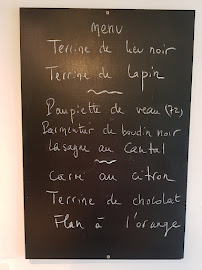 menu
Terrine de lieu noir
Terrine de lapin
Paupiette de veau (72)
Parmentier de boudin noir
Lasagne au Cantal
Carre au citron
Terrine de chocolat
Flan à l'orange